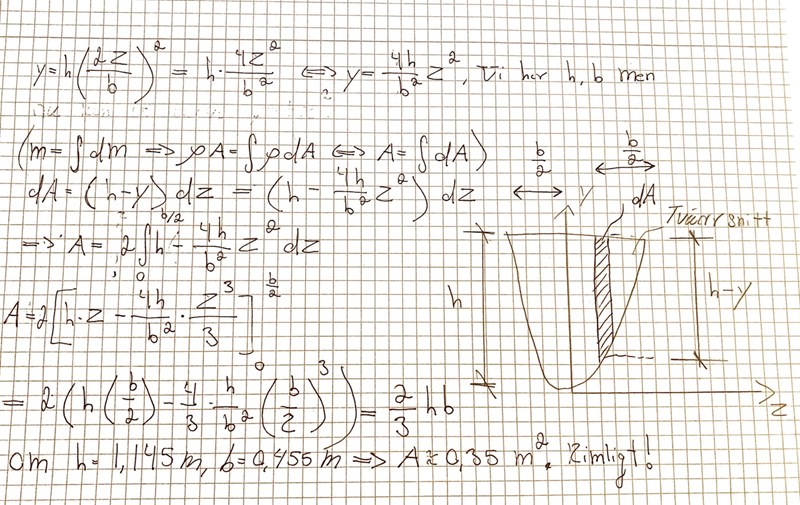 y = h(2z/b)² = h · 4z²/b² ⟺ y = 4h/b² z², Vi har h, b men
(m = ∫dm ⟹ ρA = ∫ρdA ⟺ A = ∫dA)
dA = (h-y) dz = (h - 4h/b² z²) dz
⟹ A = 2∫₀^(b/2) h - 4h/b² z² dz
A = 2[h·z - 4h/b² · z³/3]₀^(b/2)
= 2(h(b/2) - 4/3 · h/b² (b/2)³) = 2/3 hb
om h = 1,145 m, b = 0,455 m ⟹ A ≈ 0,35 m². Rimligt!
b/2
b/2
y
dA
Tvärrsnitt
h
h-y
z